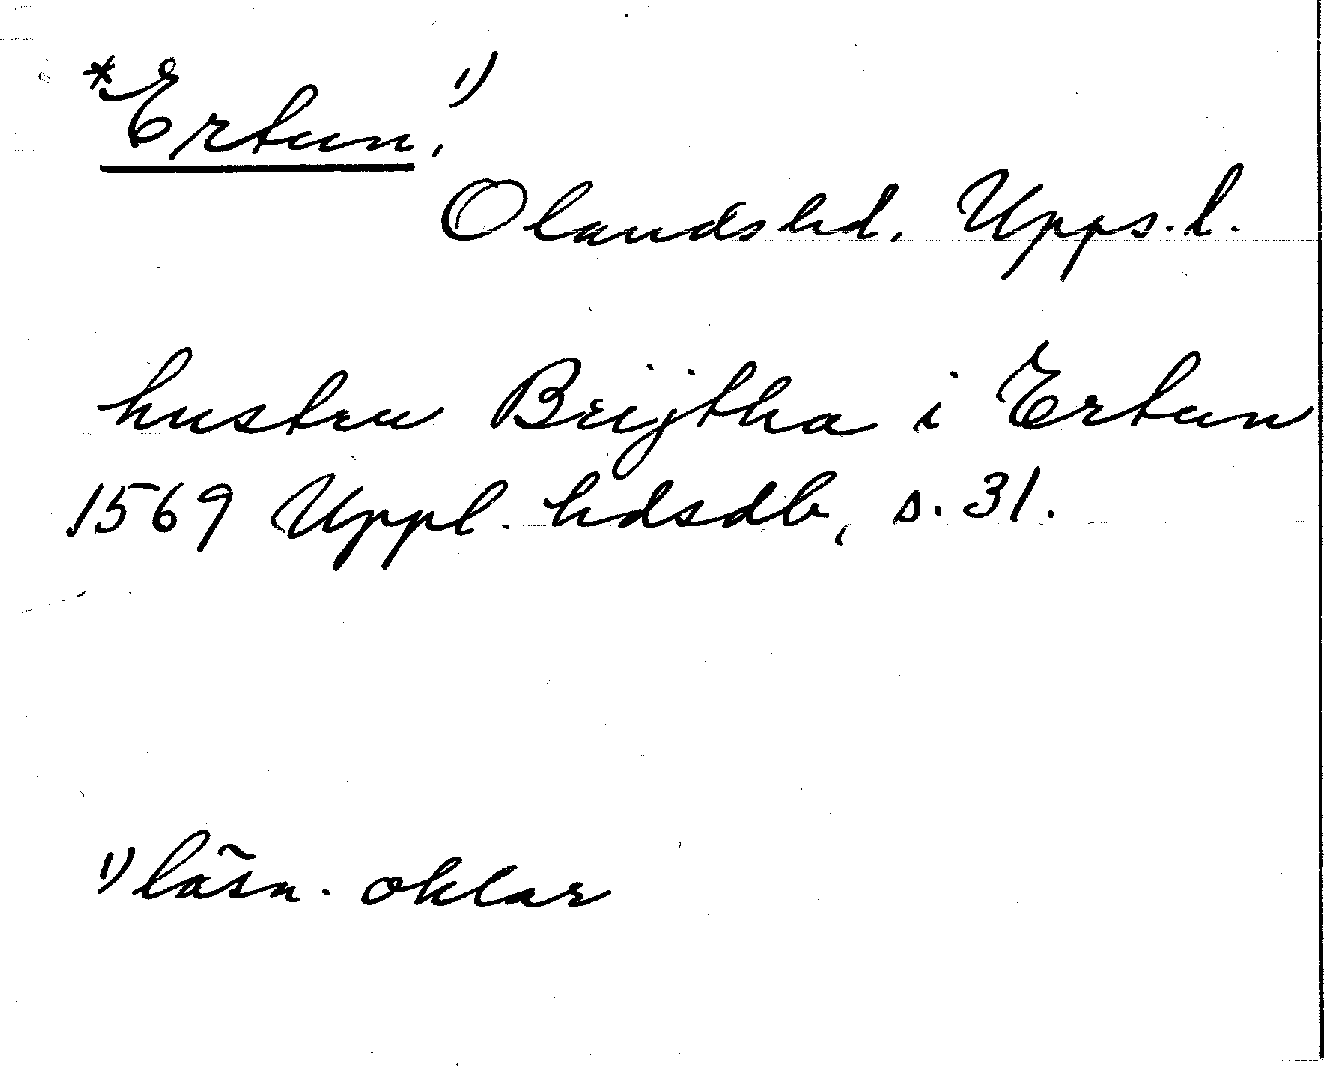 *Ertun. 1)
Olands hd. Upps. l.
hustru Brijtha i Ertun
1569 Uppl. hdsdb, s. 31.
1) läsn. oklar